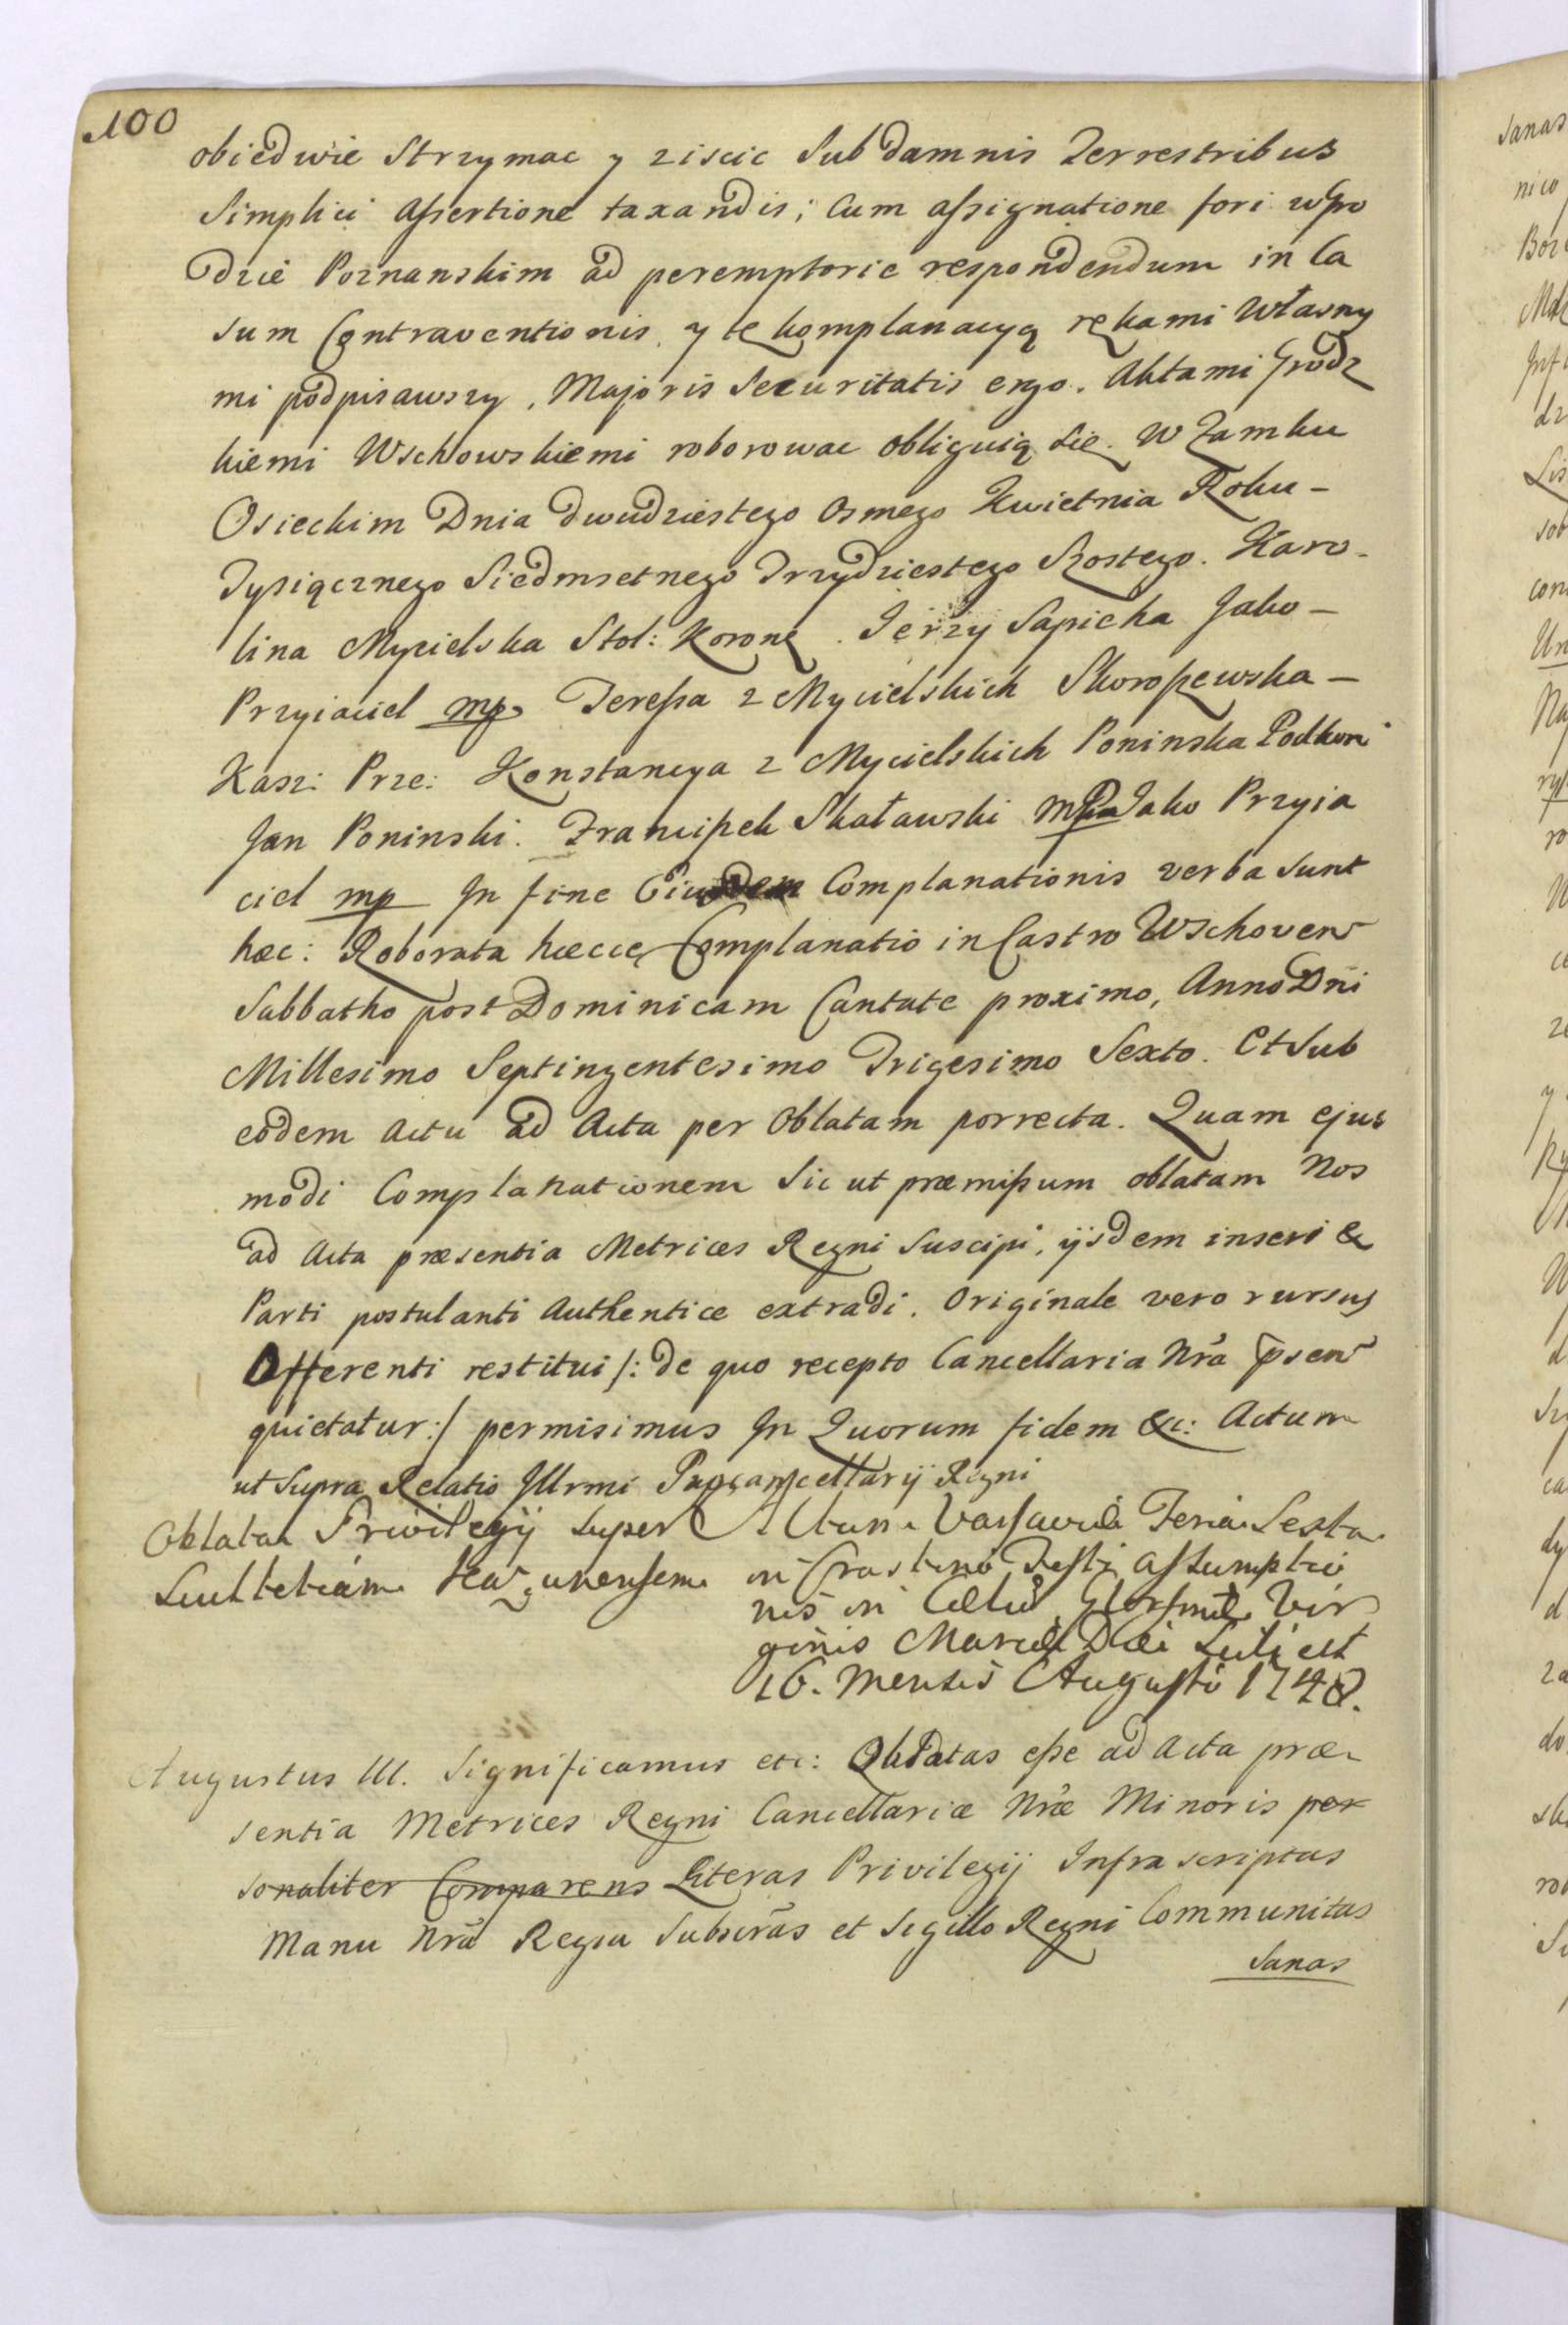 100
obiedwie Strzymac y ziscic Sub damnis Terrestribus
Simplici Assertione taxandis; Cum assignatione fori wGro
dzie Poznanskim ad peremptorie respondendum in Ca
sum Contraventionis y tę komplanacyą rękami Własny
mi podpisawszy, Majoris Securitatis ergo. Aktami Grodz
kiemi Wschowskiemi roborowac obliguią się. W Zamku
Osieckim Dnia dwudziestego Osmego Kwietnia Roku –
Tysiącznego Siedmsetnego Trzydziestego Szostego. Karo-
lina Mycielska Stol: Koronę. Jerzy Sapieha Jako –
Przyiaciel mp Teressa z Mycielskich Skoroszewska –
Kasz: Prze: Konstancya z Mycielskich Poninska Podkom
Jan Poninski. Franciszek Skaławski mp Jako Przyia
ciel mp In fine Eiusdem Complanationis verba sunt
hæc: Roborata hæcce Complanatio in Castro Wschoven
Sabbatho post Dominicam Cantate proximo, Anno Dni
Millesimo Septingentesimo Trigesimo Sexto. Et Sub
eodem Actu ad Acta per Oblatam porrecta. Quam ejus
modi Complanationem Sic ut præmissum oblatam Nos
ad Acta præsentia Metrices Regni Suscipi, ijsdem inseri &
Parti postulanti Authentice extradi. Originale vero rursus
Offerenti restitui /: de quo recepto Cancellaria Nra psen
quietatur:/ permisimus In Quorum fidem &c: Actum
ut Supra Relatio Illrmi Procancellarij Regni
Oblata Privilegij super
Scultetiam Kazunensem
Actum Varsaviæ Feria Sexta
in Crastino Festi Assumptio
nis in Cælum Glorsmæ Vir
ginis Mariæ Die Scilicet
16. Mensis Augusti 1748.
Augustus III. Significamus etc: Oblatas esse ad Acta præ-
sentia Metrices Regni Cancellariæ Nræ Minoris per
sonaliter Comparens Literas Privilegij Infrascriptas
Manu Nra Regia Subscras et Sigillo Regni Communitas
Sanas